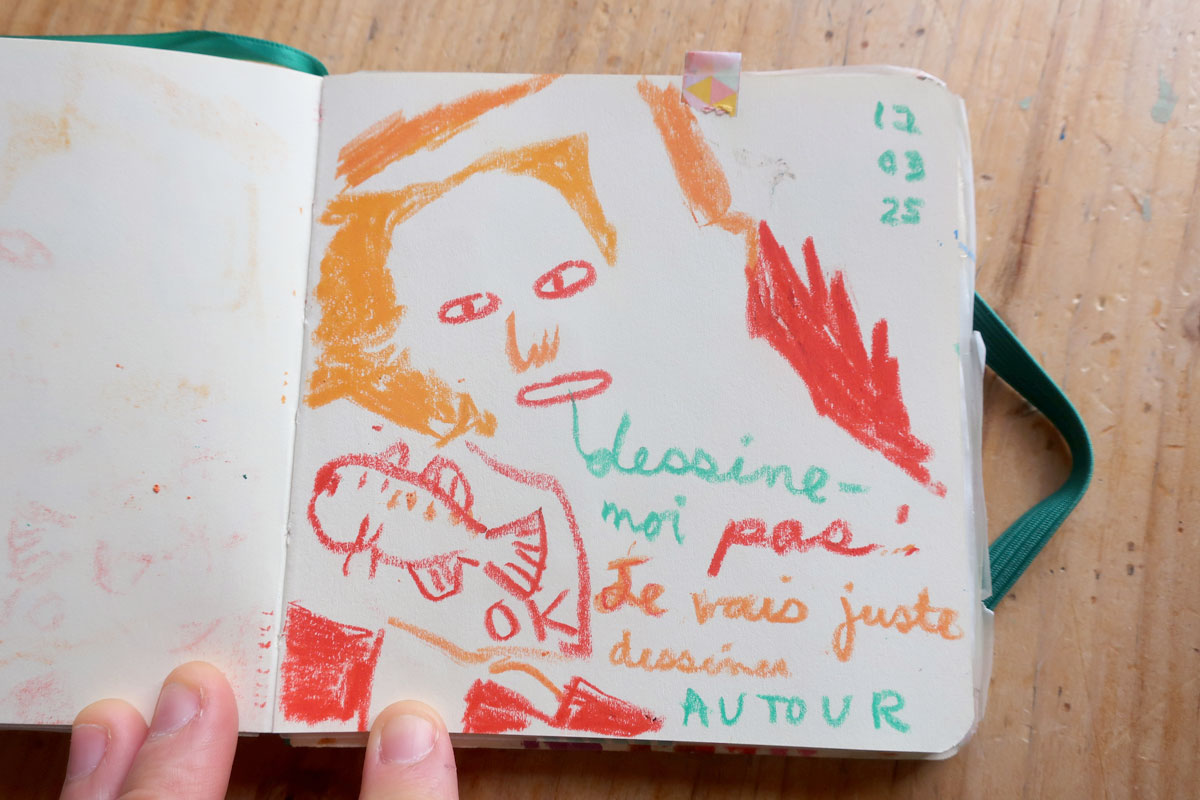 12
03
25
dessine-
moi pas!
OK
Je vais juste
dessiner
AUTOUR